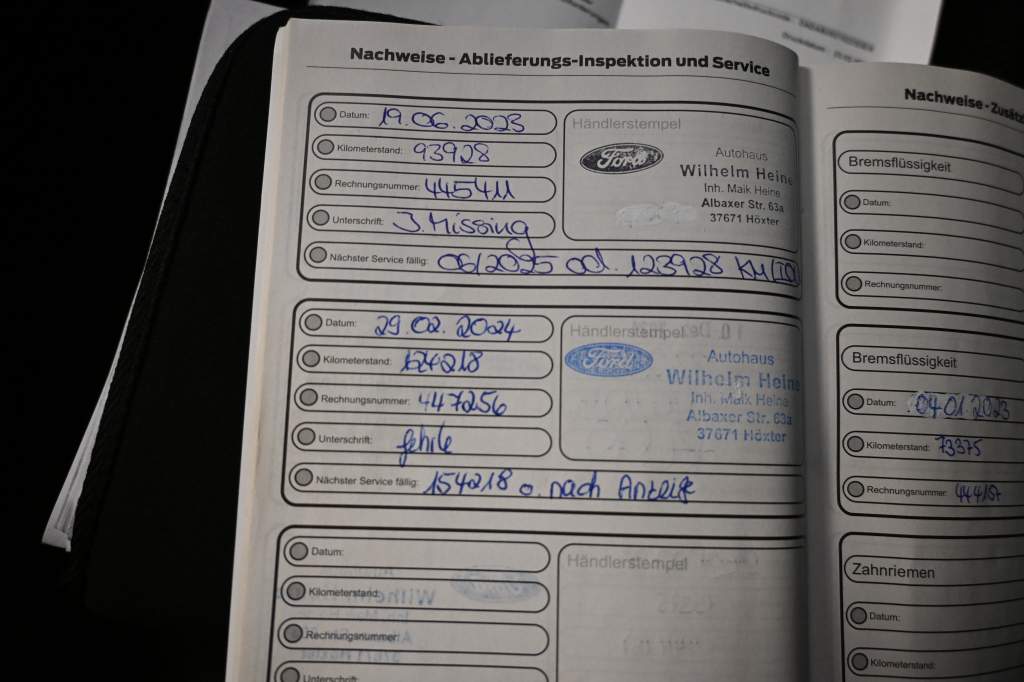 Nachweise - Ablieferungs-Inspektion und Service
Datum: 19.06.2023
Kilometerstand: 93928
Rechnungsnummer: 445411
Unterschrift: J. Missing
Nächster Service fällig: 06/2025 od. 123928 KM
Händlerstempel
Ford
Autohaus
Wilhelm Heine
Inh. Maik Heine
Albaxer Str. 63a
37671 Höxter
Datum: 29.02.2024
Kilometerstand: 124218
Rechnungsnummer: 447256
Unterschrift:
Nächster Service fällig: 154218 o. nach Anzeige
Händlerstempel
Ford
Autohaus
Wilhelm Heine
Inh. Maik Heine
Albaxer Str. 63a
37671 Höxter
Datum:
Kilometerstand:
Rechnungsnummer:
Unterschrift:
Händlerstempel
Nachweise - Zusätz
Bremsflüssigkeit
Datum:
Kilometerstand:
Rechnungsnummer:
Bremsflüssigkeit
Datum: 04.01.2023
Kilometerstand: 73375
Rechnungsnummer:
Zahnriemen
Datum:
Kilometerstand: